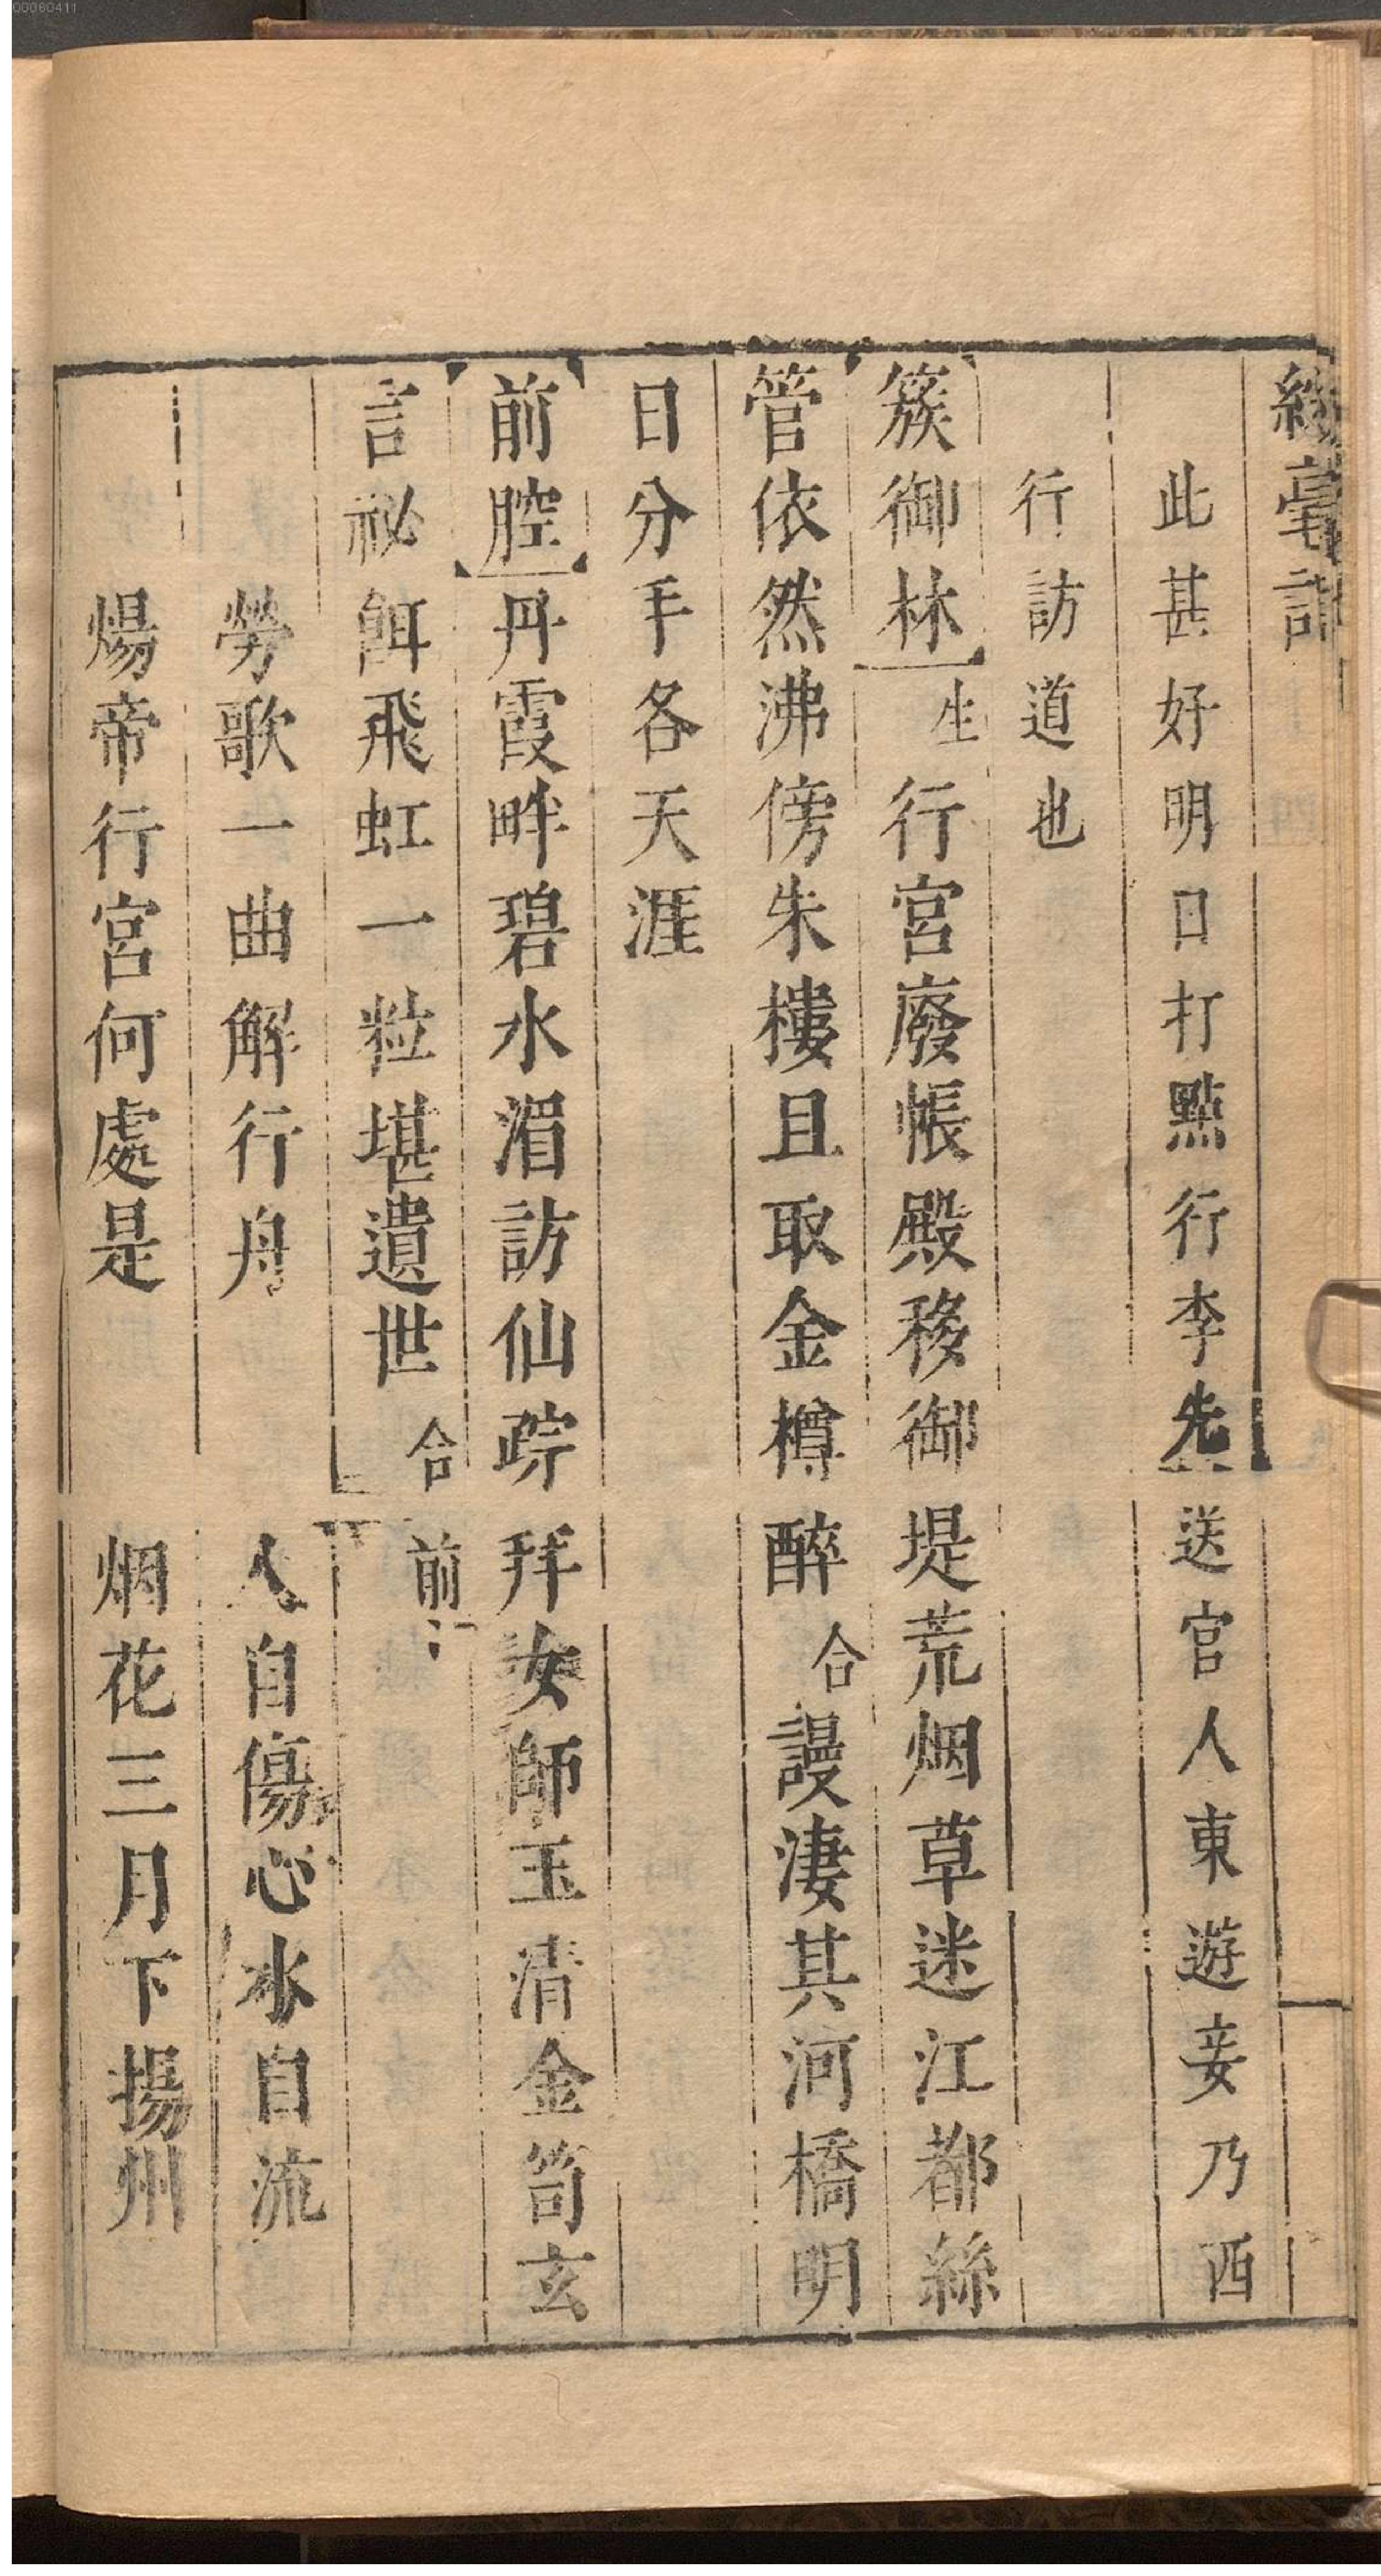 00060411
綵毫記
此甚好明日打點行李先送官人東遊妾乃西
行訪道也
簇御林生行宮廢帳殿移御堤荒烟草迷江都絲
管依然沸傍朱樓且取金樽醉合謾淒其河橋明
日分手各天涯
前腔丹霞畔碧水湄訪仙踪拜女師玉清金笥玄
言祕餌飛虹一粒堪遺世合前
勞歌一曲解行舟人自傷心水自流
煬帝行宮何處是烟花三月下揚州